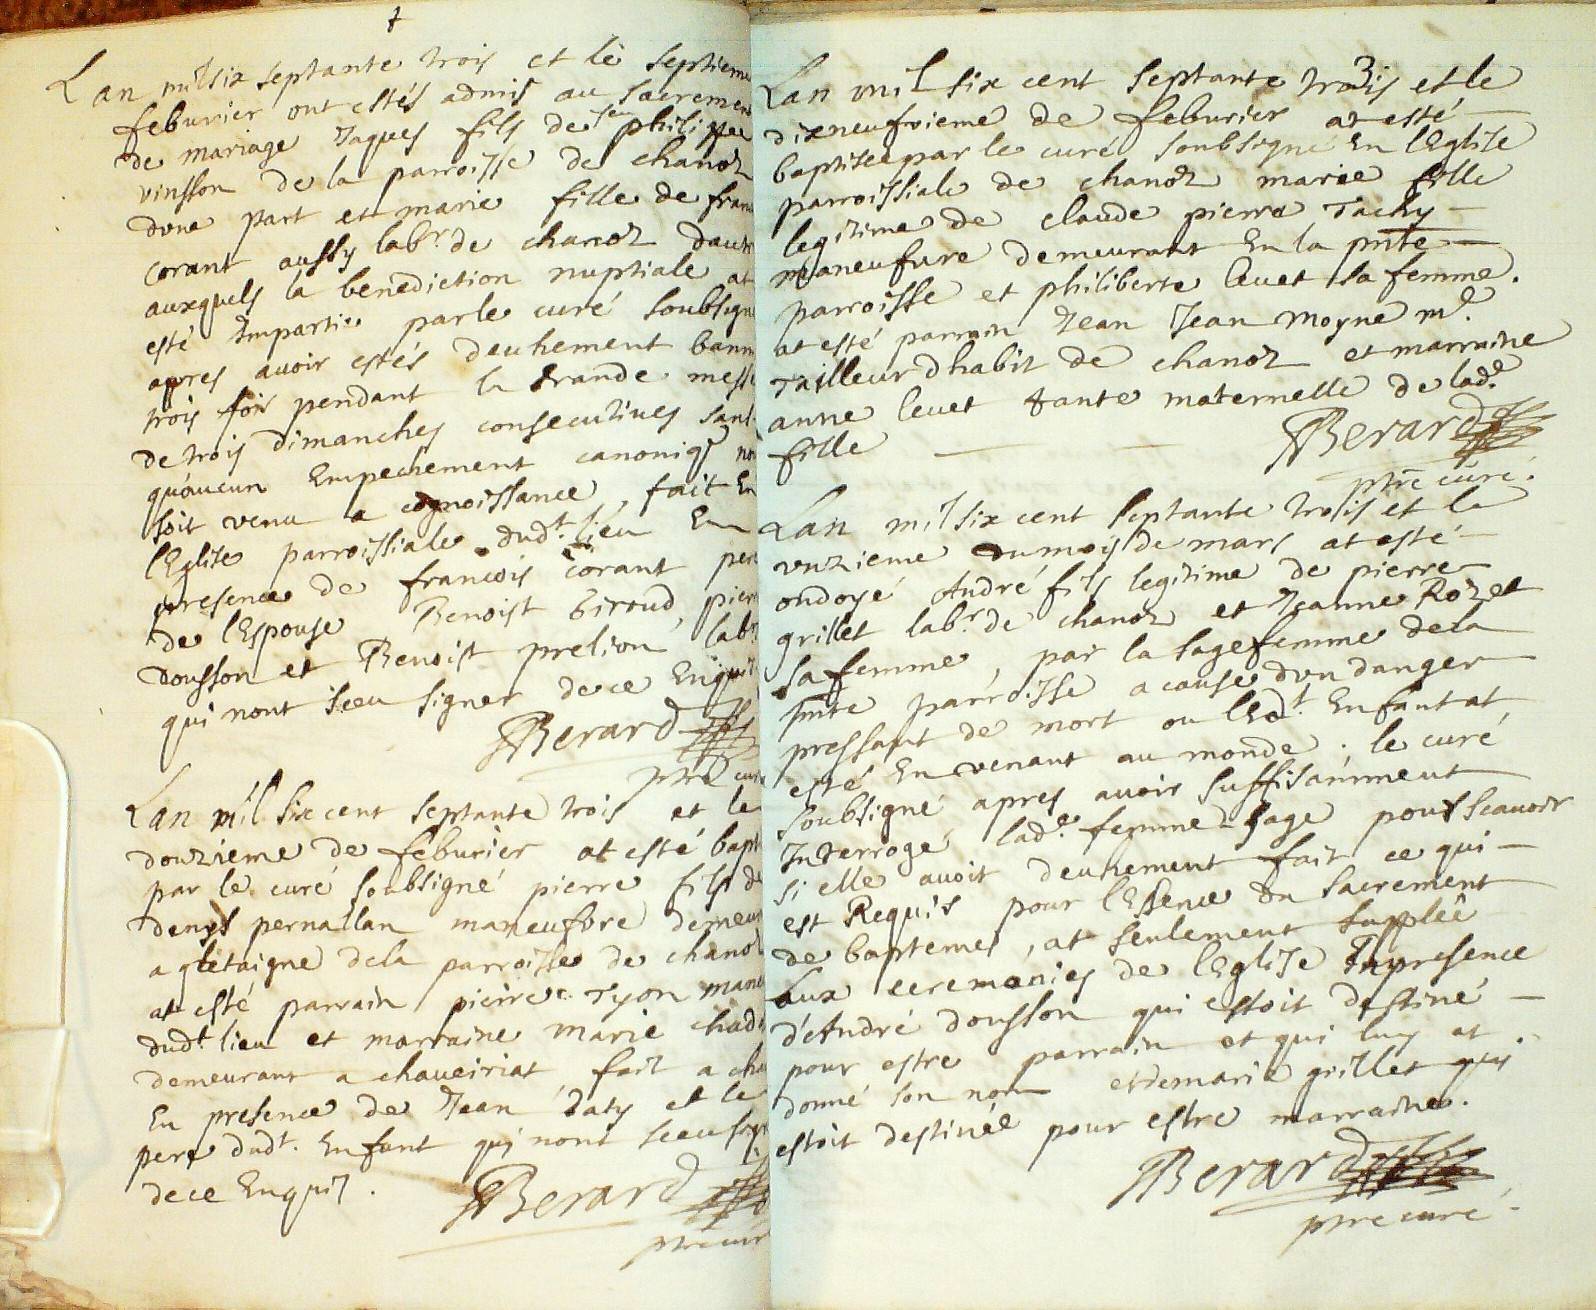 Lan mil six septante trois et le septieme
feburier ont estés admis au sacremen
de mariage Jaques fils de feu philippe
vinsson de la parroisse de chanoz
dune part et marie fille de fran
corant aussy labr. de chanoz dautr
auxquels la benediction nuptiale at
esté Impartie par le curé soubsign
apres avoir estés deuhement bann
trois fois pendant la Grande messe
de trois dimanches consecutives sans
quaucun Empechement canoniqe no
soit venu a cognoissance, fait En
lEglise parroissiale dudt. lieu En
presence de francois corant pere
de lEspouse Benoist Giroud, pierre
dousson et Benoist prelion labr.
qui nont sceu signer de ce Enquis
Berard
ptre curé
Lan mil six cent septante trois et le
douzieme de feburier at esté bapt
par le curé soubsigné pierre fils de
denys pernallan maneufvre demeur
a gletaigne dela parroisse de chanoz
at esté parrain pierre Tyon man
dudt. lieu et marraine marie chad
demeurant a chaveiriat fait a cha
En presence de Jean Paty et le
pere dudt. Enfant qui nont sceu sign
de ce Enquis.
Berard
ptre cur
Lan mil six cent septante trois et le
dixneufvieme de feburier at esté
baptisée par le curé soubsigné En lEglise
parroissiale de chanoz marie fille
legitime de claude pierre Tachy
maneufvre demeurant En la pnte
parroisse et philiberte levet sa femme.
at esté parrain Jean Jean moyne me.
Tailleur dhabit de chanoz et marraine
anne levet tante maternelle de lade.
fille
Berard
ptre curé.
Lan mil six cent septante trois et le
unzieme du mois de mars at esté
ondoyé André fils legitime de pierre
grillet labr. de chanoz et Jeanne Rozet
sa femme, par la sagefemme dela
pnte parroisse a cause dun danger
pressant de mort ou ledt. Enfant at
esté En venant au monde. le curé
soubsigné apres avoir suffisamment
Interrogé lade. femme-sage pour scavoir
si elle avoit deuhement fait ce qui
est Requis pour lEssence du sacrement
de baptemes, at seulement supplée
aux ceremonies de lEglise Inpresence
d'André dousson qui estoit destiné
pour estre parrain et qui luy at
donné son nom et de marie grillet qui
estoit destinée pour estre marraine.
Berard
ptre curé.